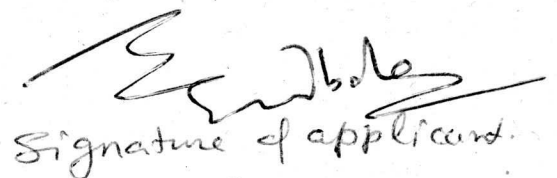 Signature of applicant.